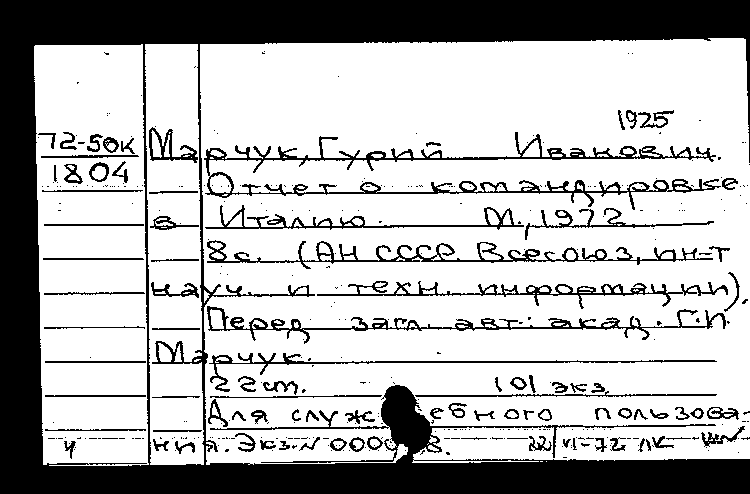 1925
72-50к Марчук, Гурий Иванович.
1804 Отчет о командировке
в Италию. М., 1972.
8с. (АН СССР. Всесоюз, ин-т
науч. и техн. информации).
Перед загл. авт.: акад. Г.И.
Марчук.
22 см. 101 экз.
Для служебного пользова-
ния. Экз. N